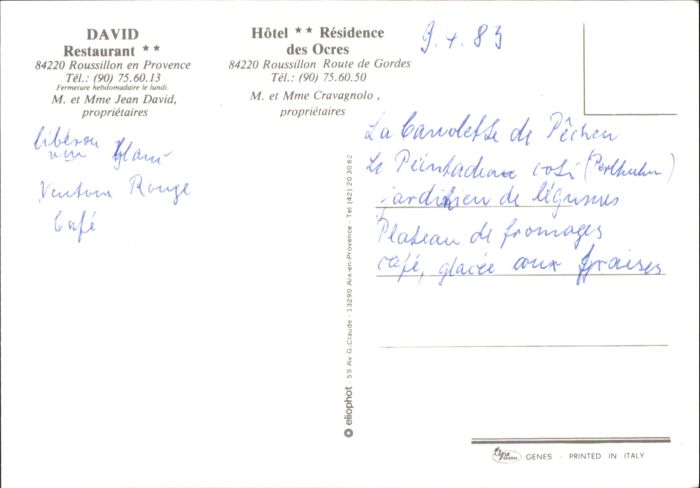 DAVID
Restaurant **
84220 Roussillon en Provence
Tél.: (90) 75.60.13
Fermeture hebdomadaire le lundi.
M. et Mme Jean David,
propriétaires
Hôtel ** Résidence
des Ocres
84220 Roussillon Route de Gordes
Tél.: (90) 75.60.50
M. et Mme Cravagnolo,
propriétaires
9.4.83
Ventoux Rouge
Café
La de Pêcheu
Le Pintadeau (Perlhuhn)
jardinien de légumes
Plateau de fromages
café, glacée aux fraises
eliophot - 59 Av G. Claude - 13290 Aix-en-Provence - Tél (42) 20 30 82
GENES - PRINTED IN ITALY